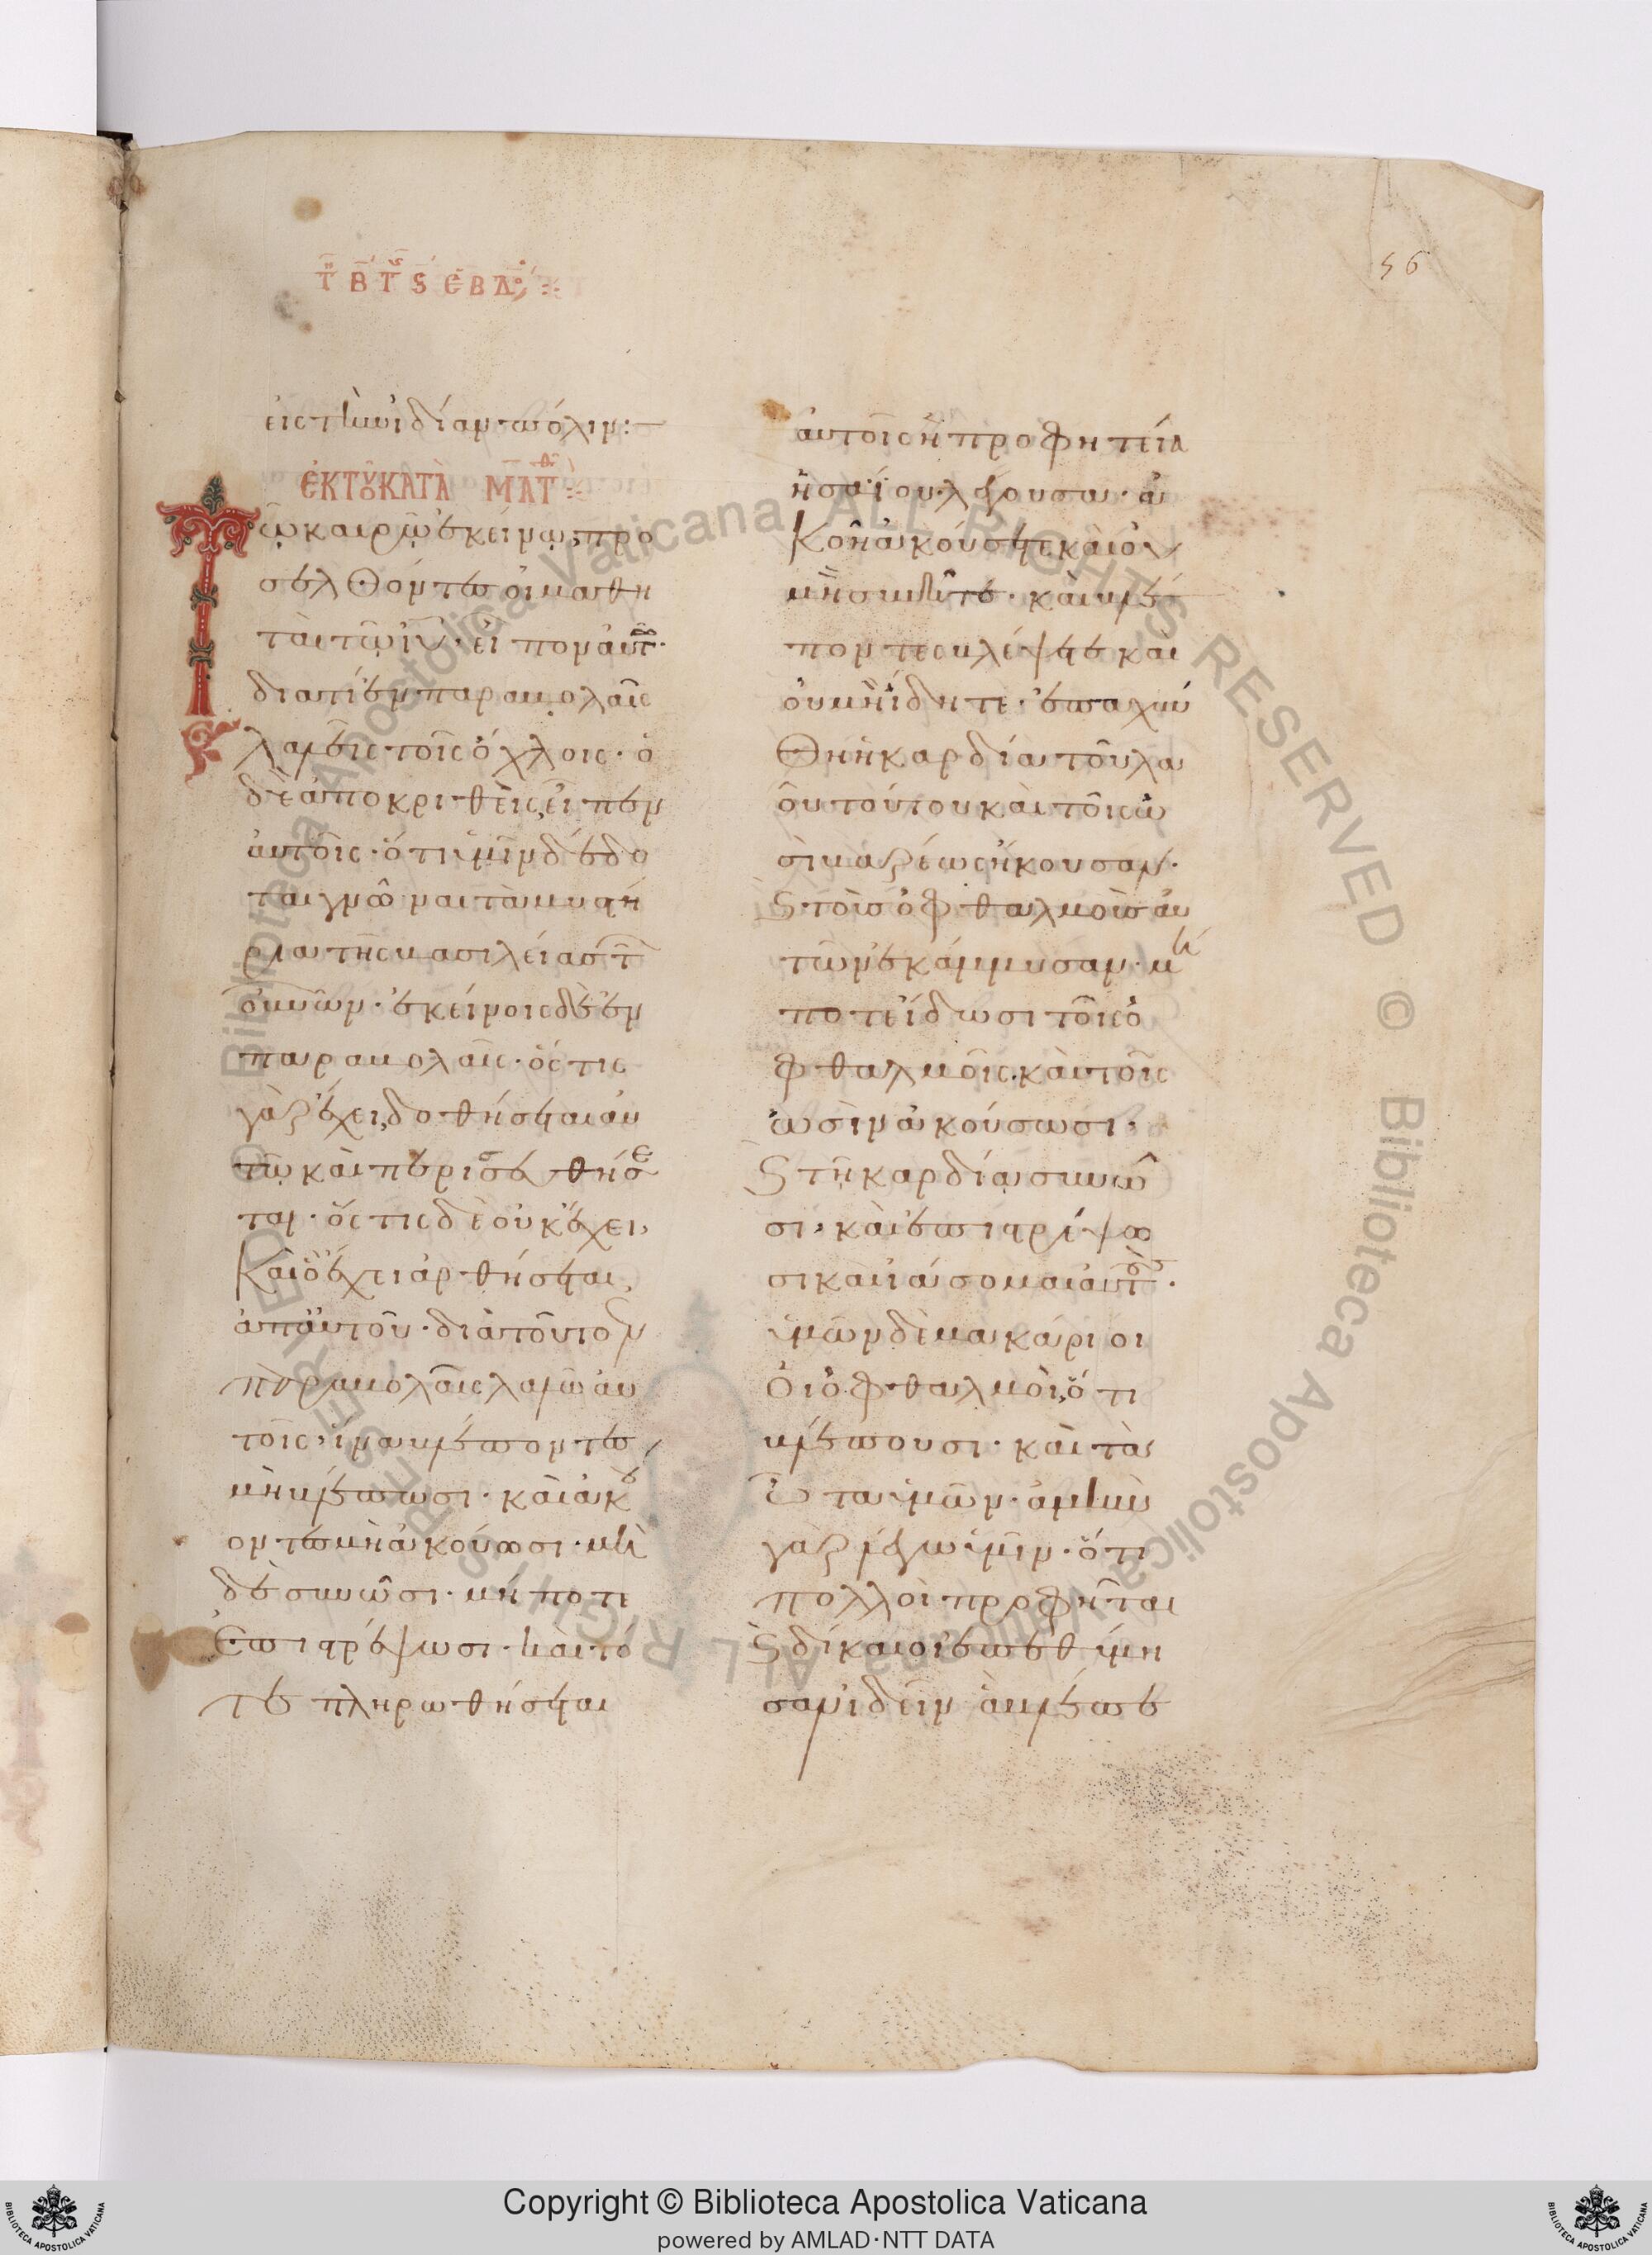 τῇ β τῆς ς ἑβδ
56
εἰς τὴν ἰδίαν πόλιν:
ἐκ τοῦ κατὰ Ματθ
Τῷ καιρῷ ἐκείνῳ, προ
σελθόντες οἱ μαθη
ταὶ τῷ ἰυ· εἶπον αὐτῷ·
διατί ἐν παραβολαῖς
λαλεῖς τοῖς ὄχλοις· ὁ
δὲ ἀποκριθεὶς, εἶπεν
αὐτοῖς· ὅτι ὑμῖν δέδο
ται γνῶναι τὰ μυστή
ρια τῆς βασιλείας τ
οὐνῶν· ἐκείνοις δὲ ἐν
παραβολαῖς· ὅστις
γὰρ ἔχει, δοθήσεται αὐ
τῷ καὶ περισσευθήσε
ται· ὅστις δὲ οὐκ ἔχει,
καὶ ὃ ἔχει ἀρθήσεται
ἀπ' αὐτοῦ· διὰ τοῦτο ἐν
παραβολαῖς λαλῶ αὐ
τοῖς, ἵνα βλέποντες
μὴ βλέπωσι· καὶ ἀκού
οντες μὴ ἀκούωσι· μὴ
δὲ συνῶσι· μήποτε
ἐπιστρέψωσι· καὶ τό
τε πληρωθήσεται
αὐτοῖς ἡ προφητεία
ἡσαΐου λέγουσα· ἀ
κοῇ ἀκούσετε καὶ οὐ
μὴ συνῆτε· καὶ βλέ
ποντες βλέψετε καὶ
οὐ μὴ ἴδητε· ἐπαχύν
θη ἡ καρδία τοῦ λα
οῦ τούτου καὶ τοῖς ὠ
σὶ βαρέως ἤκουσαν·
καὶ τοὺς ὀφθαλμοὺς αὐ
τῶν ἐκάμμυσαν· μή
ποτε ἴδωσι τοῖς ὀ
φθαλμοῖς. κ αὐτοῖς
ὠσὶν ἀκούσωσι·
καὶ τῇ καρδίᾳ συνῶ
σι, καὶ ἐπιστρέψω
σι καὶ ἰάσομαι αὐτούς·
ὑμῶν δὲ μακάριοι
οἱ ὀφθαλμοὶ, ὅτι
βλέπουσι· καὶ τὰ
ὦτα ὑμῶν· ἀμὴν
γὰρ λέγω ὑμῖν· ὅτι
πολλοὶ προφῆται
καὶ δίκαιοι ἐπεθύμη
σαν ἰδεῖν ἃ βλέπε
Copyright © Biblioteca Apostolica Vaticana
powered by AMLAD·NTT DATA